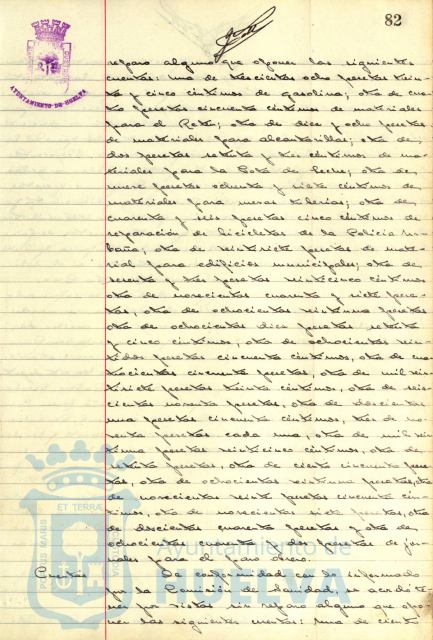 82
AYUNTAMIENTO-DE-HUELVA
reparo alguno que oponer las siguientes
cuentas: una de trescientas ocho pesetas trein-
ta y cinco céntimos de gasolina; otra de cua-
tro pesetas cincuenta céntimos de materiales
para el Retén; otra de diez y ocho pesetas
de materiales para alcantarillas; otra de
dos pesetas setenta y tres céntimos de ma-
teriales para la Gota de leche; otra de
nueve pesetas ochenta y siete céntimos de
materiales para nuevas tuberías; otra de
cuarenta y seis pesetas cinco céntimos de
reparación de bicicletas de la Policía ur-
bana; otra de veintisiete pesetas de mate-
rial para edificios municipales; otra de
setenta y tres pesetas veinticinco céntimos
otra de novecientas cuarenta y siete pese-
tas, otra de ochocientas veintiuna pesetas
otra de ochocientas diez pesetas setenta
y cinco céntimos, otra de ochocientas vein-
tidós pesetas cincuenta céntimos, otra de cua-
trocientas cincuenta pesetas, otra de mil vein-
tisiete pesetas treinta céntimos, otra de seis-
cientas noventa pesetas, otra de doscientas
una pesetas cincuenta céntimos, tres de no-
venta pesetas cada una, otra de mil vein-
tiuna pesetas veinticinco céntimos, otra de
setenta pesetas, otra de ciento cincuenta pese-
tas, otra de ochocientas veintiuna pesetas, otra
de novecientas siete pesetas cincuenta cén-
timos, otra de novecientas siete pesetas, otra
de doscientas cuarenta pesetas y otra de
ochocientas cuarenta y dos pesetas de jor-
nales para el paro obrero.
Cuentas De conformidad con lo informado
por la Comisión de Sanidad, se acordó te-
ner por vistas sin reparo alguno que opo-
ner las siguientes cuentas: Una de ciento
Ayuntamiento de
HUELVA